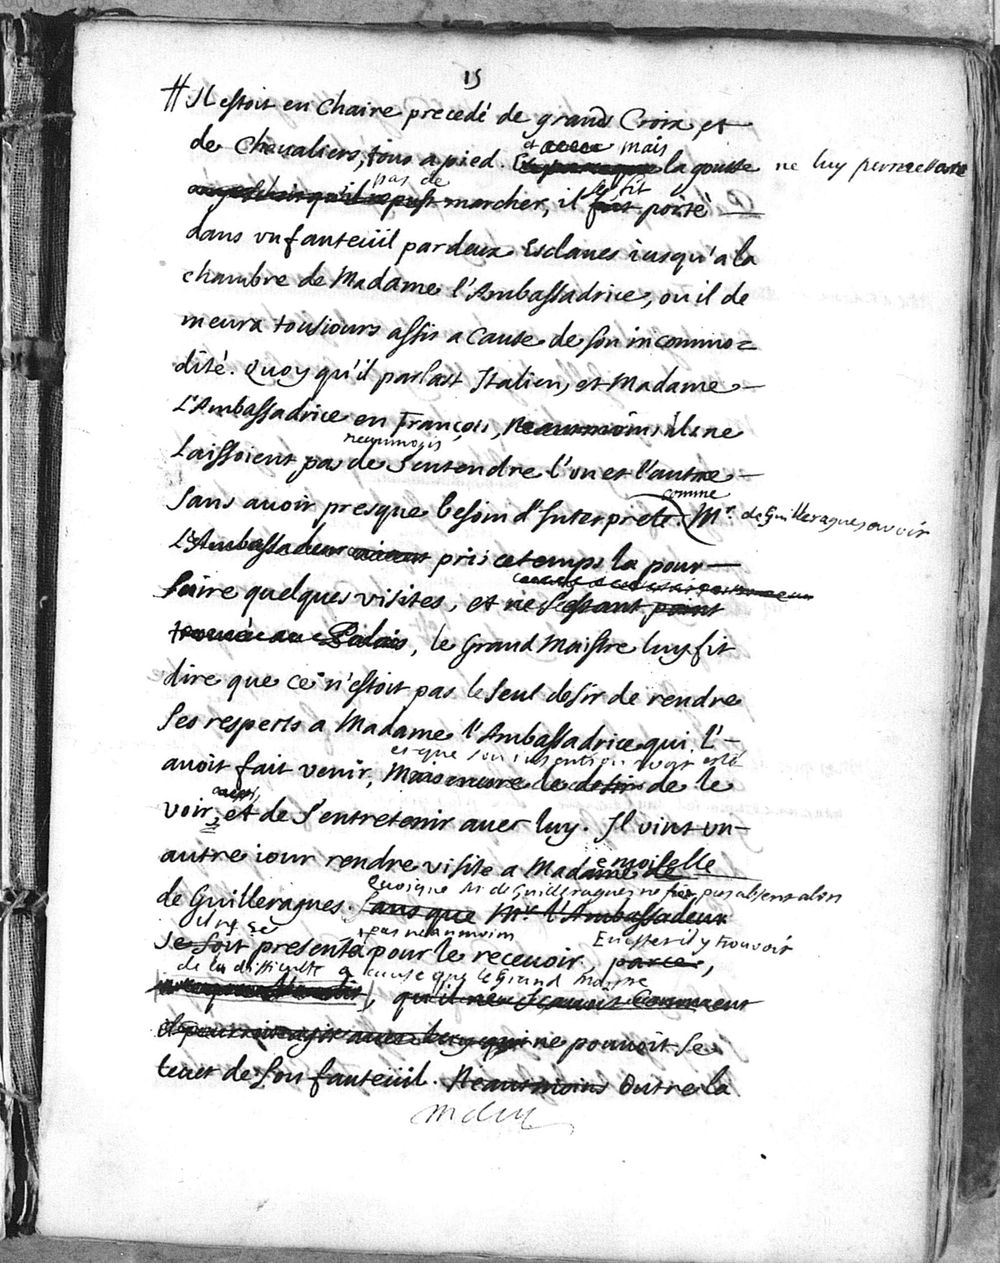 15
# Il estoit en Chaire precedé de grands Croix et
de Chevaliers, tous a pied. et mais la goutte ne luy permettant
pas de marcher, il se fit porté
dans vn fauteüil par deux Esclaues iusqu'a la
chambre de Madame l'Ambassadrice, ou il de
meura tousiours assis a cause de son incommo=
dité. Quoy qu'il parlast Italien, et Madame
L'Ambassadrice en François, Neantmoins ils ne
Laissoient pas neanmoins de s'entendre l'vn et l'autre
sans auoir presque besoin d'Interprete. comme Mr. de Guilleragues auoit
L'Ambassadeur pris ce temps la pour
faire quelques visites, et ne s'estant point
trouué au Palais, le Grand Maistre luy fit
dire que ce n'estoit pas le seul desir de rendre
ses respects a Madame l'Ambassadrice qui l'
auoit fait venir, Mais encore le desir de le
et que son intention avoit esté
voir, aussi, et de s'entretenir auec luy. Il vint vn
autre iour rendre visite a Mademoiselle
de Guilleragues. Sans que Mr. l'Ambassadeur
Quoique Mr. de Guilleragues ne fût pas absent alors
il ne se
se soit presenta pas neanmoins pour le receuoir, parce, En effet il y trouvoit
de la difficulté a cause que le Grand Maistre
qu'il ne sçauoit comment
il pourroit agir auec luy qui ne pouuoit se
leuer de son fauteüil. Neantmoins Outre la